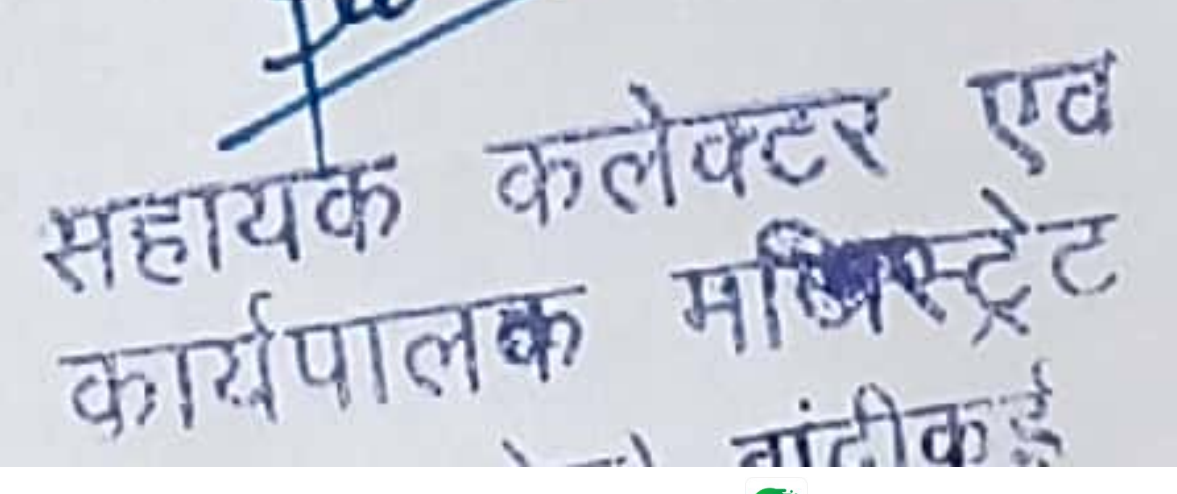 सहायक कलेक्टर एवं
कार्यपालक मजिस्ट्रेट
बांदीकुई